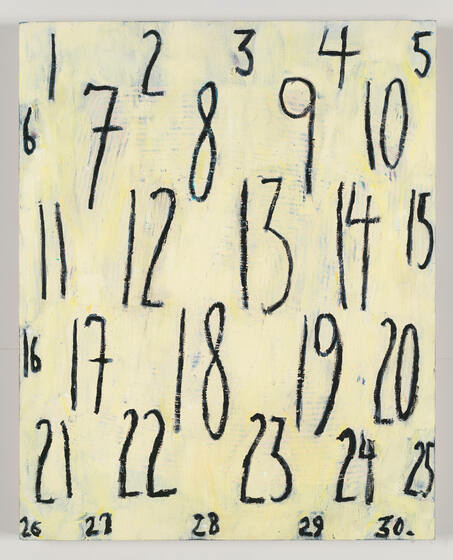 1 2 3 4 5
6 7 8 9 10
11 12 13 14 15
16 17 18 19 20
21 22 23 24 25
26 27 28 29 30.